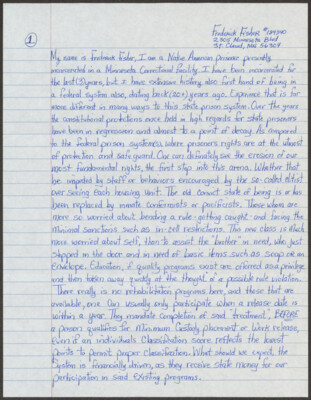 1
Frederick Fisher #
2305 Minnesota Blvd
St. Cloud, MN 56304
My name is Frederick Fisher, I am a Native American prisoner presently
incarcerated in a Minnesota Correctional Facility. I have been incarcerated for
the last (3) years, but I have extensive history also first hand of being in
a federal system also, dating back (20+) years ago. Experience that is far
more different in many ways to this state prison system. Over the years
the constitutional protections once held in high regards for state prisoners
have been in regression and almost to a point of decay. As compared
to the federal prison systems, where prisoners rights are at the utmost
of protection and safe guard. One can definitely see the erosion of our
most fundamental rights, the first step into this arena. Whether that
be impeded by staff or behaviors encouraged by the so-called
over seeing each housing unit. The old convict state of being is or has
been replaced by inmate conformists or pacificists. Those whom are
more so worried about bending a rule - getting caught - and facing the
minimal sanctions such as in-cell restrictions. This new class is much
more worried about self, than to assist the "brother" in need, who just
stepped in the door and in need of basic items such as soap or an
Envelope. Education, if quality programs exist are offered as a privilege
and then taken away quickly at the thought of a possible rule violation.
There really is no rehabilitation programs here, and those that are
available, one can usually only participate when a release date is
within a year. They mandate completion of said "treatment", BEFORE
a person qualifies for Minimum Custody placement or Work release,
Even if an individuals Classification score reflects the lowest
points to permit proper classification. What should we expect, the
System is financially driven, as they receive state money for our
participation in said Existing programs.